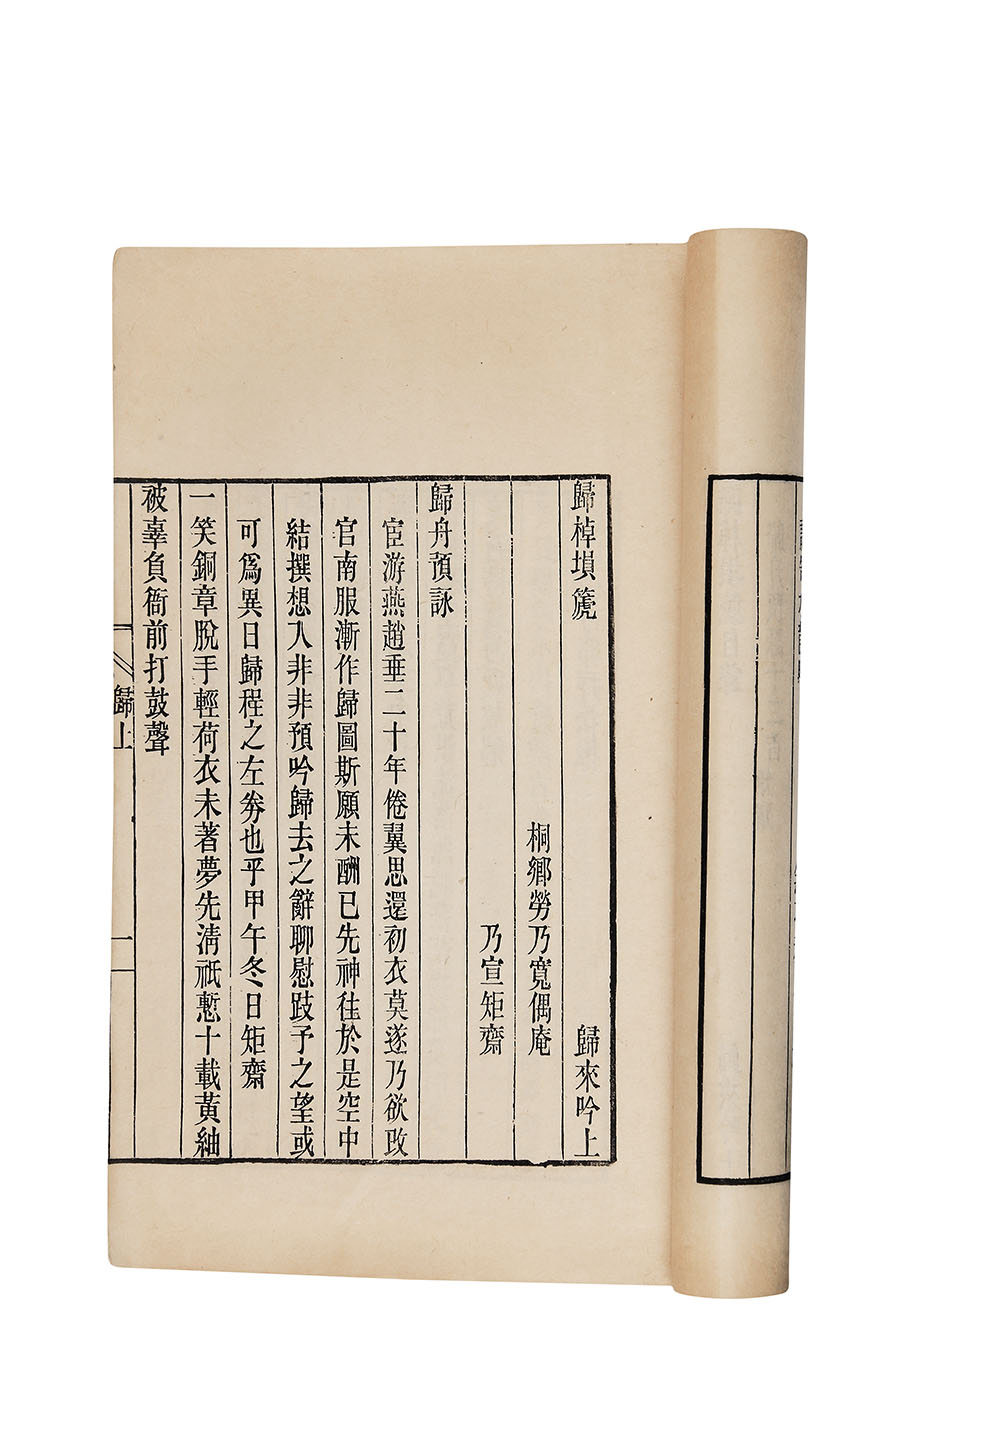 歸棹塤篪 歸來吟上
桐鄉勞乃寬偶庵
乃宣矩齋
歸舟預詠
宦游燕趙垂二十年倦翼思還初衣莫遂乃欲改
官南服漸作歸圖斯願未酬已先神往於是空中
結撰想入非非預吟歸去之辭聊慰跂予之望或
可爲異日歸程之左券也乎甲午冬日矩齋
一笑銅章脫手輕荷衣未著夢先淸祇慙十載黃紬
被辜負衙前打鼓聲
歸上
一